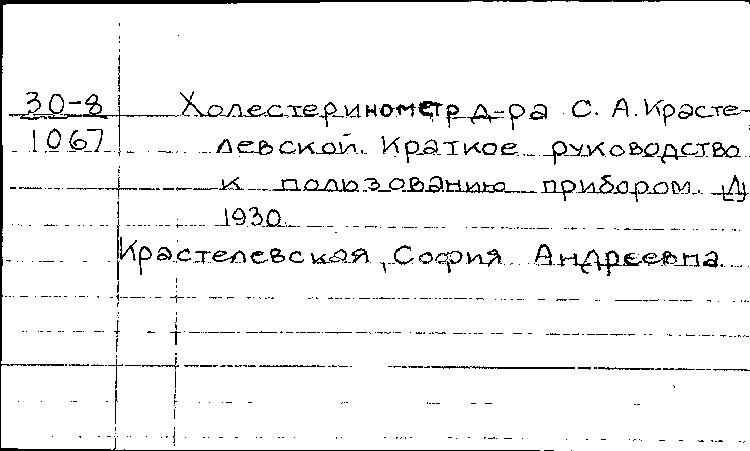 30-8 Холестеринометр д-ра С. А. Красте-
1067 левской. Краткое руководство
к пользованию прибором. [Л]
1930
Крастелевская, София Андреевна